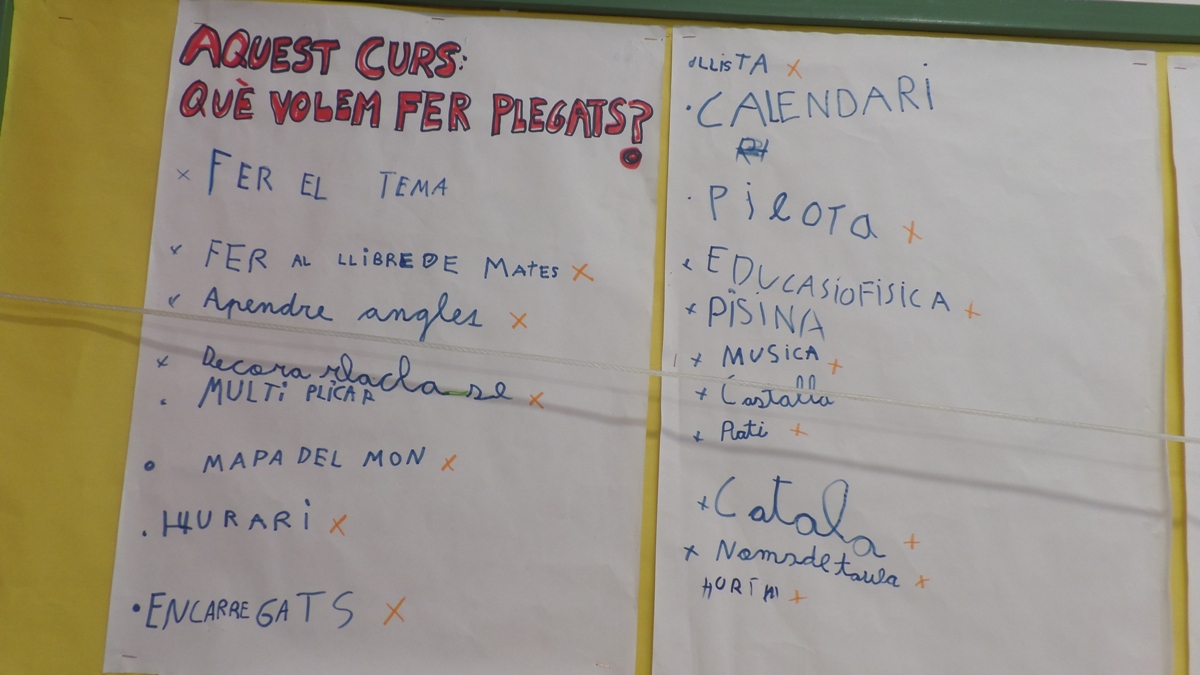 AQUEST CURS:
QUÈ VOLEM FER PLEGATS?
× FER EL TEMA
× FER AL LLIBRE DE MATES ×
× Apendre angles ×
× Decora rlacla se ×
· MULTI PLICAR
• MAPA DEL MON ×
· HURARI ×
• ENCARREGATS ×
· LLISTA ×
· CALENDARI
· PilOTa ×
× EDUCASIOFISICA +
× PISINA
+ MUSICA +
+ Castallà
+ Pati +
+ Catala +
× Nomsdetaula ×